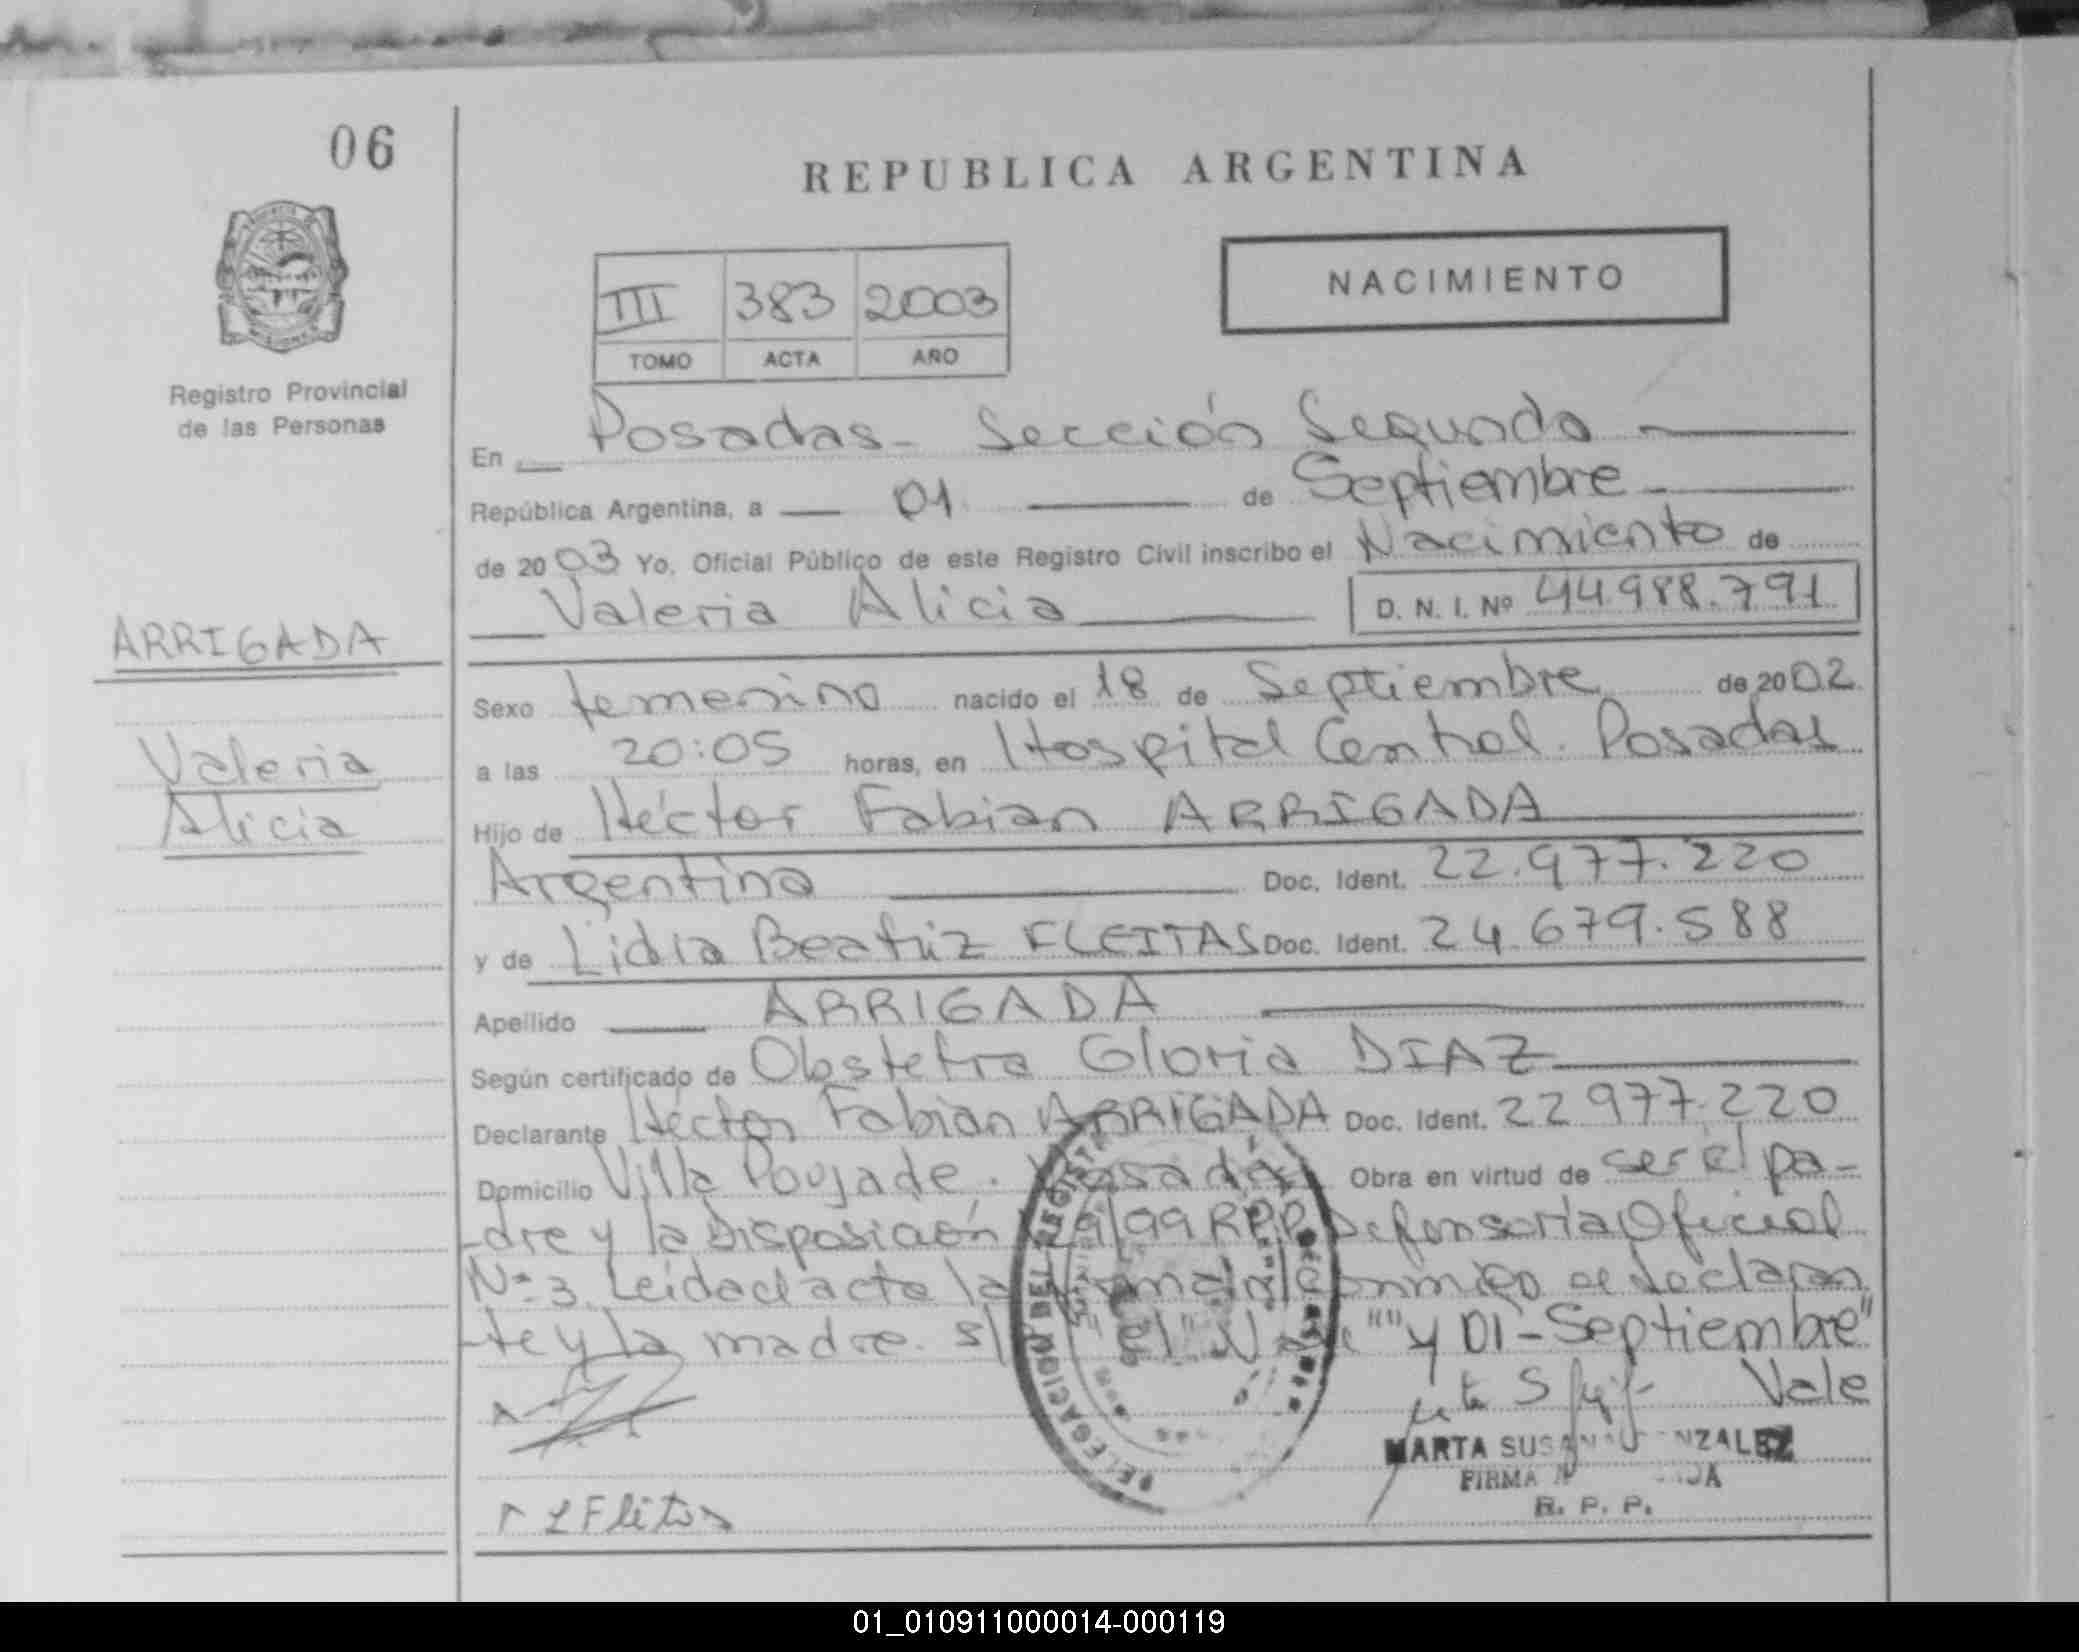 06
REPUBLICA ARGENTINA
NACIMIENTO
III 383 2003
TOMO ACTA AÑO
Registro Provincial
de las Personas
En Posadas - Sección Segunda
República Argentina, a 01 de Septiembre
de 2003 Yo, Oficial Público de este Registro Civil inscribo el Nacimiento de
Valeria Alicia D. N. I. Nº 44.988.791
ARRIGADA
Valeria
Alicia
Sexo femenino nacido el 18 de Septiembre de 2002
a las 20:05 horas, en Hospital Central. Posadas
Hijo de Héctor Fabian ARRIGADA
Argentina Doc. Ident. 22.977.220
y de Lidia Beatriz FLEITAS Doc. Ident. 24.679.588
Apellido ARRIGADA
Según certificado de Obstetra Gloria DIAZ
Declarante Héctor Fabian ARRIGADA Doc. Ident. 22.977.220
Domicilio Villa Poujade. Posadas Obra en virtud de ser el pa-
-dre y la Disposición /99 RPP Defensoría Oficial
Nº 3. Leida el acta la conmigo el declaran
-te y la madre. s/ "el" "y 01 - Septiembre"
Vale
DELEGACION DEL REGISTRO
MARTA SUSANA GONZALEZ
FIRMA
R. P. P.
L Fleitas
01_010911000014-000119